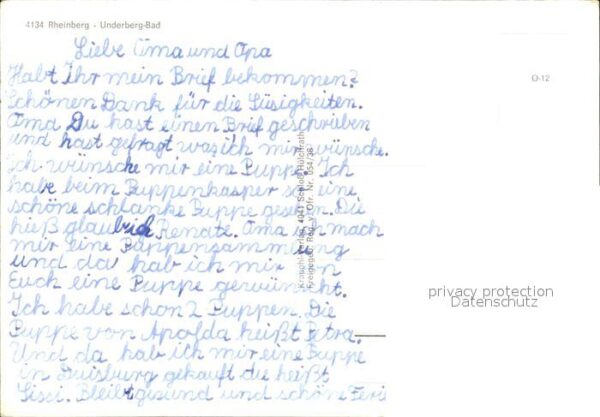 4134 Rheinberg - Underberg-Bad
Liebe Oma und Opa
Habt Ihr mein Brief bekommen?
Schönen Dank für die Süsigkeiten.
Oma Du hast einen Brief geschrieben
und hast gefragt was ich mir wünsche.
Ich wünsche mir eine Puppe. Ich
habe beim Puppenkasper so eine
schöne schlanke Puppe gesehen. Die
hieß glaub ich Renate. Oma ich mach
mir eine Puppensammlung
und da hab ich mir von
Euch eine Puppe gewünscht.
Ich habe schon 2 Puppen. Die
Puppe von Apolda heißt Petra.
Und da hab ich mir eine Puppe
in Duisburg gekauft die heißt
Sissi. Bleibt gesund und schöne Feri
O-12
privacy protection
Datenschutz